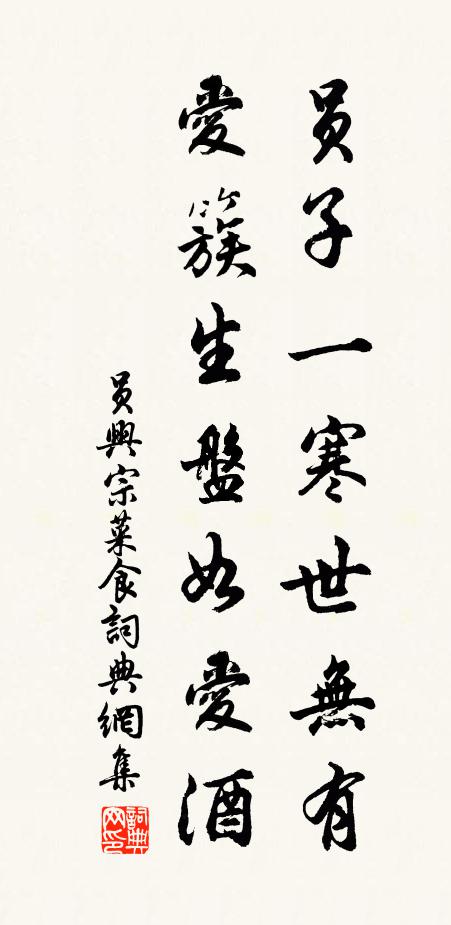 員子一寒世無有
愛簇生盤如愛酒
員興宗菜食詞典網集
詞典网印